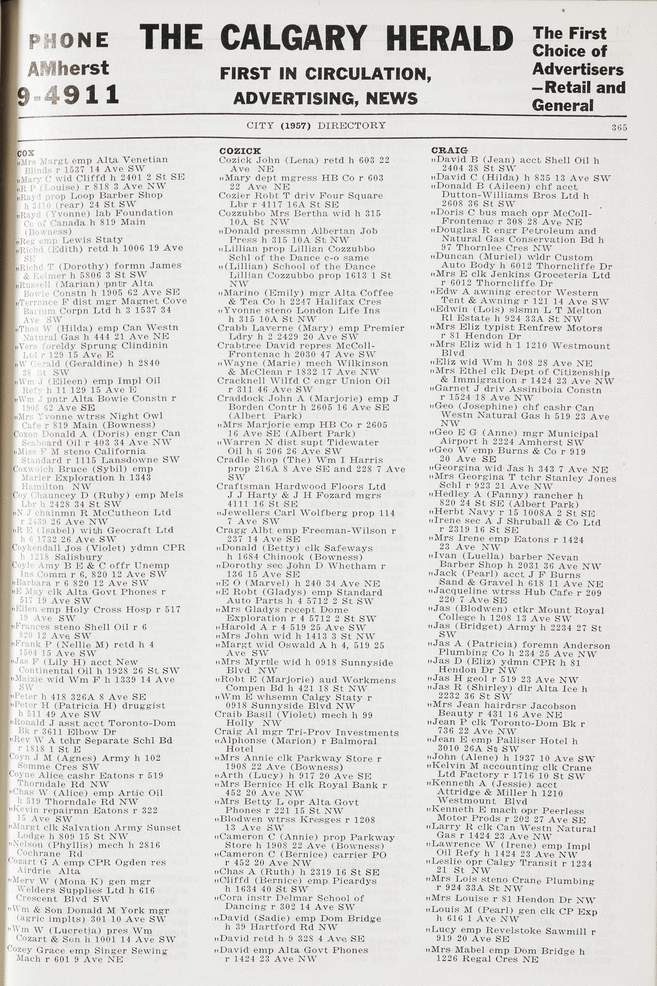 PHONE
AMherst
9-4911
THE CALGARY HERALD
FIRST IN CIRCULATION,
ADVERTISING, NEWS
The First
Choice of
Advertisers
—Retail and
General
CITY (1957) DIRECTORY
365
COX
"Mrs Margt emp Alta Venetian
Blinds r 1537 14 Ave SW
"Mary C wid Cliffd h 2401 2 St SE
"R P (Louise) r 818 3 Ave NW
"Rayd prop Loop Barber Shop
h 3110 (rear) 24 St SW
"Rayd (Yvonne) lab Foundation
Co of Canada h 819 Main
(Bowness)
"Reg emp Lewis Staty
"Richd (Edith) retd h 1006 19 Ave
SE
"Richd T (Dorothy) formn James
& Reimer h 5806 3 St SW
"Russell (Marian) pntr Alta
Bowie Constn h 1905 62 Ave SE
"Terrance F dist mgr Magnet Cove
Barium Corpn Ltd h 3 1537 34
Ave SW
"Thos W (Hilda) emp Can Westn
Natural Gas h 444 21 Ave NE
"Vera foreldy Sprung Clindinin
Ltd r 129 15 Ave E
"W Gerald (Geraldine) h 2840
28 St SW
"Wm J (Eileen) emp Impl Oil
Refy h 11 129 15 Ave E
"Wm J pntr Alta Bowie Constn r
1905 62 Ave SE
"Mrs Yvonne wtrss Night Owl
Cafe r 819 Main (Bowness)
Coxon Donald A (Doris) engr Can
Seaboard Oil r 403 34 Ave NW
"Miss F M steno California
Standard r 1115 Lansdowne SW
Coxwoich Bruce (Sybil) emp
Marler Exploration h 1343
Hamilton NW
Coy Chauncey D (Ruby) emp Mels
Lbr h 2428 34 St SW
"N J chainmn R McCutheon Ltd
r 2439 26 Ave NW
"R E (Isabel) with Geocraft Ltd
h 6 1732 26 Ave SW
Coykendall Jos (Violet) ydmn CPR
h 1218 Salisbury
Coyle Amy B E C offr Unemp
Ins Comm r 6, 820 12 Ave SW
"Barbara r 6 820 12 Ave SW
"E May clk Alta Govt Phones r
517 19 Ave SW
"Ellen emp Holy Cross Hosp r 517
19 Ave SW
"Frances steno Shell Oil r 6
820 12 Ave SW
"Frank P (Nellie M) retd h 4
1504 15 Ave SW
"Jas F (Lily H) acct New
Continental Oil h 1928 26 St SW
"Maizie wid Wm F h 1339 14 Ave
SW
"Peter h 418 326A 8 Ave SE
"Peter H (Patricia H) druggist
h 511 49 Ave SW
"Ronald J asst acct Toronto-Dom
Bk r 3611 Elbow Dr
"Rev W A tchr Separate Schl Bd
r 1818 1 St E
Coyn J M (Agnes) Army h 102
Somme Cres SW
Coyne Alice cashr Eatons r 519
Thorndale Rd NW
"Chas W (Alice) emp Artic Oil
h 519 Thorndale Rd NW
"Kevin repairmn Eatons r 322
15 Ave SW
"Margt clk Salvation Army Sunset
Lodge h 809 15 St NW
"Nelson (Phyllis) mech h 2816
Cochrane Rd
Cozart G A emp CPR Ogden res
Airdrie Alta
"Merv W (Mona K) gen mgr
Welders Supplies Ltd h 616
Crescent Blvd SW
"Wm & Son Donald M York mgr
(agric implts) 301 10 Ave SW
"Wm W (Lucretia) pres Wm
Cozart & Son h 1001 14 Ave SW
Cozey Grace emp Singer Sewing
Mach r 601 9 Ave NE
COZICK
Cozick John (Lena) retd h 603 22
Ave NE
"Mary dept mgress HB Co r 603
22 Ave NE
Cozier Robt T driv Four Square
Lbr r 4117 16A St SE
Cozzubbo Mrs Bertha wid h 315
10A St NW
"Donald pressmn Albertan Job
Press h 315 10A St NW
"Lillian prop Lillian Cozzubbo
Schl of the Dance c-o same
"(Lillian) School of the Dance
Lillian Cozzubbo prop 1613 1 St
NW
"Marino (Emily) mgr Alta Coffee
& Tea Co h 2247 Halifax Cres
"Yvonne steno London Life Ins
h 315 10A St NW
Crabb Laverne (Mary) emp Premier
Ldry h 2 2429 20 Ave SW
Crabtree David repres McColl-
Frontenac h 2030 47 Ave SW
"Wayne (Marie) mech Wilkinson
& McClean r 1832 17 Ave NW
Cracknell Wilfd C engr Union Oil
r 311 46 Ave SW
Craddock John A (Marjorie) emp J
Borden Contr h 2605 16 Ave SE
(Albert Park)
"Mrs Marjorie emp HB Co r 2605
16 Ave SE (Albert Park)
"Warren N dist supt Tidewater
Oil h 6 206 26 Ave SW
Cradle Shop (The) Wm I Harris
prop 216A 8 Ave SE and 228 7 Ave
SW
Craftsman Hardwood Floors Ltd
J J Harty & J H Fozard mgrs
4111 16 St SE
"Jewellers Carl Wolfberg prop 114
7 Ave SW
Cragg Albt emp Freeman-Wilson r
237 14 Ave SE
"Donald (Betty) clk Safeways
h 1684 Chinook (Bowness)
"Dorothy sec John D Whetham r
136 15 Ave SE
"E O (Marvel) h 240 34 Ave NE
"E Robt (Gladys) emp Standard
Auto Parts h 4 5712 2 St SW
"Mrs Gladys recept Dome
Exploration r 4 5712 2 St SW
"Harold A r 4 519 25 Ave SW
"Mrs John wid h 1413 3 St NW
"Margt wid Oswald A h 4, 519 25
Ave SW
"Mrs Myrtle wid h 0918 Sunnyside
Blvd NW
"Robt E (Marjorie) aud Workmens
Compen Bd h 421 18 St NW
"Wm E whsemn Calgy Staty r
0918 Sunnyside Blvd NW
Craib Basil (Violet) mech h 99
Holly NW
Craig Al mgr Tri-Prov Investments
"Alphonse (Marion) r Balmoral
Hotel
"Mrs Annie clk Parkway Store r
1908 22 Ave (Bowness)
"Arth (Lucy) h 917 20 Ave SE
"Mrs Bernice H clk Royal Bank r
452 20 Ave NW
"Mrs Betty L opr Alta Govt
Phones r 221 15 St NW
"Blodwen wtrss Kresges r 1208
13 Ave SW
"Cameron C (Annie) prop Parkway
Store h 1908 22 Ave (Bowness)
"Cameron C (Bernice) carrier PO
r 452 20 Ave NW
"Chas A (Ruth) h 2319 16 St SE
"Cliffd (Bernice) emp Picardys
h 1634 40 St SW
"Cora instr Delmar School of
Dancing r 302 14 Ave SW
"David (Sadie) emp Dom Bridge
h 39 Hartford Rd NW
"David retd h 9 328 4 Ave SE
"David emp Alta Govt Phones
r 1424 23 Ave NW
CRAIG
"David B (Jean) acct Shell Oil h
2404 38 St SW
"David C (Hilda) h 835 13 Ave SW
"Donald B (Aileen) chf acct
Dutton-Williams Bros Ltd h
2608 36 St SW
"Doris C bus mach opr McColl-
Frontenac r 308 28 Ave NE
"Douglas R engr Petroleum and
Natural Gas Conservation Bd h
97 Thornlee Cres NW
"Duncan (Muriel) wldr Custom
Auto Body h 6012 Thorncliffe Dr
"Mrs E clk Jenkins Groceteria Ltd
r 6012 Thorncliffe Dr
"Edw A awning erector Western
Tent & Awning r 121 14 Ave SW
"Edwin (Lois) slsmn L T Melton
Rl Estate h 924 33A St NW
"Mrs Eliz typist Renfrew Motors
r 81 Hendon Dr
"Mrs Eliz wid h 1 1210 Westmount
Blvd
"Eliz wid Wm h 308 28 Ave NE
"Mrs Ethel clk Dept of Citizenship
& Immigration r 1424 23 Ave NW
"Garnet J driv Assiniboia Constn
r 1524 18 Ave NW
"Geo (Josephine) chf cashr Can
Westn Natural Gas h 519 23 Ave
NW
"Geo E G (Anne) mgr Municipal
Airport h 2224 Amherst SW
"Geo W emp Burns & Co r 919
20 Ave SE
"Georgina wid Jas h 343 7 Ave NE
"Mrs Georgina T tchr Stanley Jones
Schl r 923 21 Ave NW
"Hedley A (Fanny) rancher h
820 24 St SE (Albert Park)
"Herbt Navy r 15 1008A 2 St SE
"Irene sec A J Shruball & Co Ltd
r 2319 16 St SE
"Mrs Irene emp Eatons r 1424
23 Ave NW
"Ivan (Luella) barber Nevan
Barber Shop h 2031 36 Ave NW
"Jack (Pearl) acct J F Burns
Sand & Gravel h 618 11 Ave NE
"Jacqueline wtrss Hub Cafe r 209
220 7 Ave SE
"Jas (Blodwen) ctkr Mount Royal
College h 1208 13 Ave SW
"Jas (Bridget) Army h 2234 27 St
SW
"Jas A (Patricia) foremn Anderson
Plumbing Co h 234 25 Ave NW
"Jas D (Eliz) ydmn CPR h 81
Hendon Dr NW
"Jas H geol r 519 23 Ave NW
"Jas R (Shirley) dlr Alta Ice h
2232 36 St SW
"Mrs Jean hairdrsr Jacobson
Beauty r 431 16 Ave NE
"Jean P clk Toronto-Dom Bk r
736 22 Ave NW
"Jean E emp Palliser Hotel h
3010 26A St SW
"John (Alene) h 1937 10 Ave SW
"Kelvin M accounting clk Crane
Ltd Factory r 1716 10 St SW
"Kenneth A (Jessie) acct
Attridge & Miller h 1210
Westmount Blvd
"Kenneth E mach opr Peerless
Motor Prods r 202 27 Ave SE
"Larry R clk Can Westn Natural
Gas r 1424 23 Ave NW
"Lawrence W (Irene) emp Impl
Oil Refy h 1424 23 Ave NW
"Leslie opr Calgy Transit r 1234
21 St NW
"Mrs Lois steno Crane Plumbing
r 924 33A St NW
"Mrs Louise r 81 Hendon Dr NW
"Louis M (Pearl) gen clk CP Exp
h 616 1 Ave NW
"Lucy emp Revelstoke Sawmill r
919 20 Ave SE
"Mrs Mabel emp Dom Bridge h
1226 Regal Cres NE